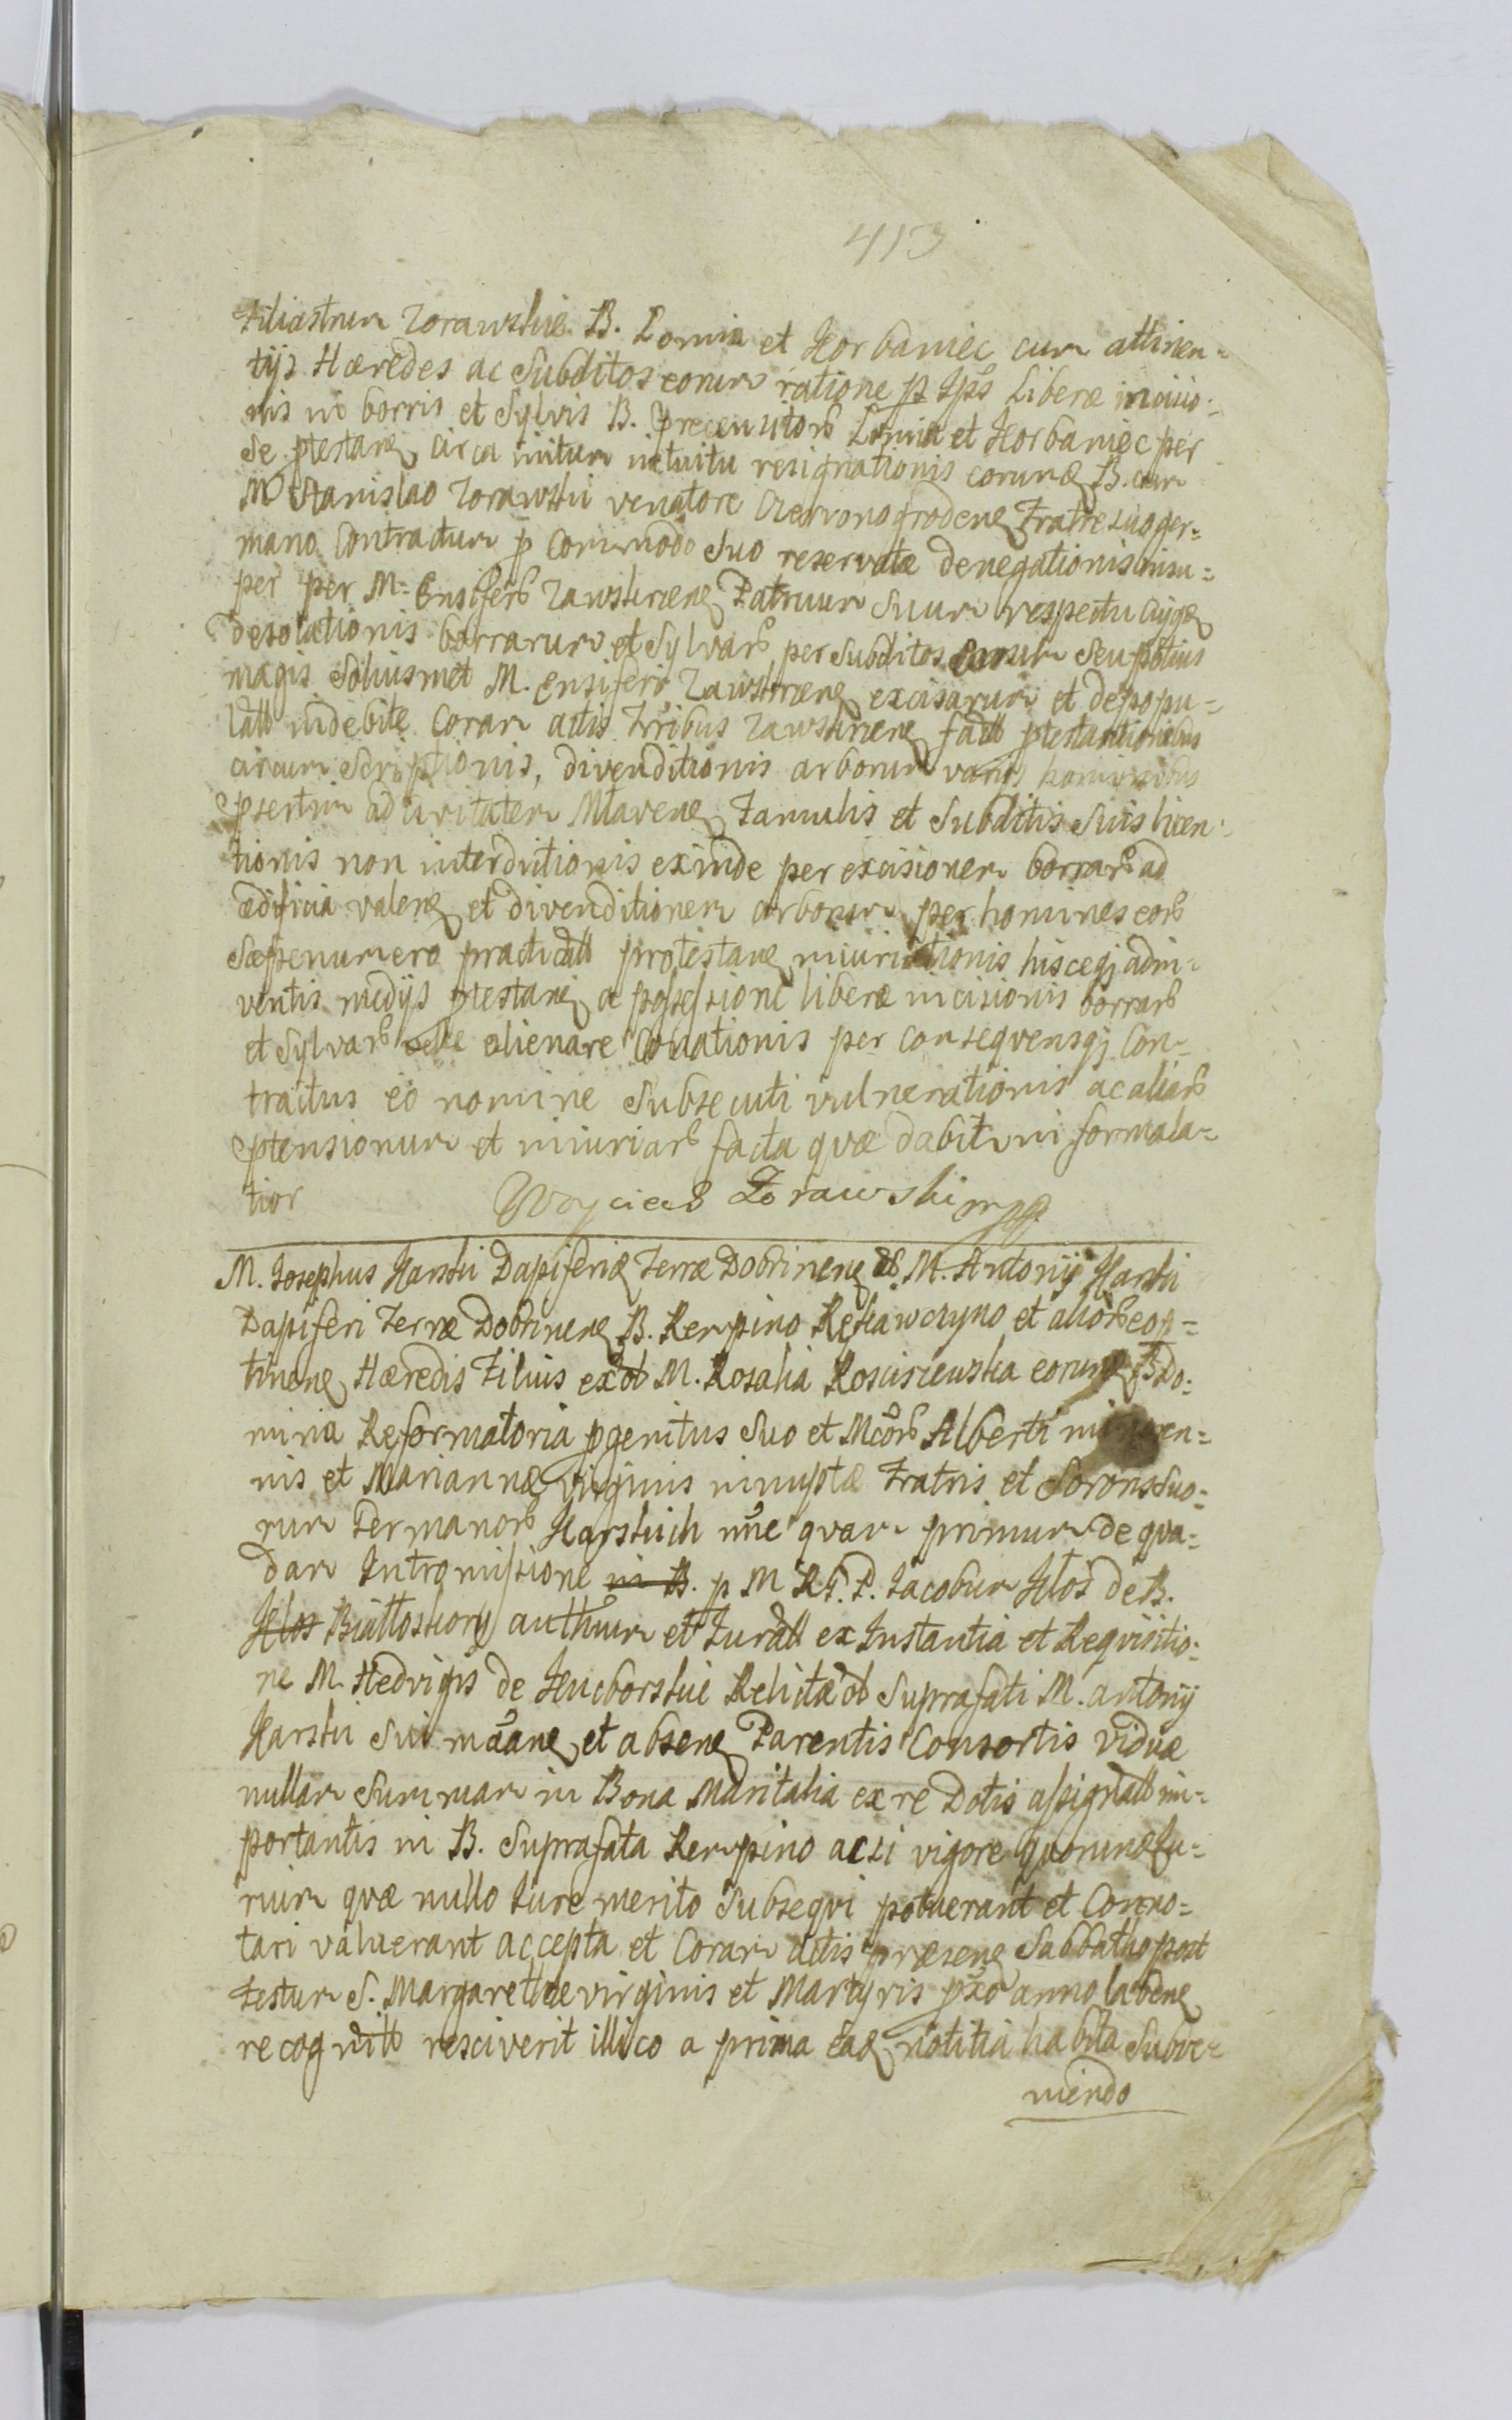 413
Filiastrum Zorawskie B. Lomia et Horbaniec cum attinen-
tijs Hæredes ac Subditos eorum ratione p Ips Liberæ incisio-
nis in borris et Sylvis B. precensitorb Lomia et Horbaniec per
se ptestane circa initum intuitu resignationis eorund B. cum
M Stanislao Zorawski venatore Czervonogrodene Fratre suo ger-
mano Contractum p Commodo Suo reservatæ denegationis insu-
per per M. Ensiferb Zawskrzene Patruum Suum respectu
desolationis borrarum et Sylvarb per Subditos eorum seu potius
magis Soliusmet M. Ensiferi Zawskrzene excisarum et depopu-
latt indebite Coram actis Trribus Zawskrzene fatt ptestantionibus
circumscriptionis, divenditionis arborum varijs hominibus
psertim ad civitatem Mlavene Famulis et Subditis Suis licen-
tionis non interditionis exinde per excisionem borrarb ad
ædificia valene et divenditionem arborum per homines eorb
Sæpenumero practicatt protestane iniuriationis hisceqj adin-
ventis medijs ptestane a possessione liberæ incisionis borrarb
et Sylvarb selle alienare Conationis per consequensqj Con-
tractus eo nomine Subsecuti vulnerationis ac aliarb
ptensionum et iniuriarb facta quæ dabit in formala-
tior Woyciech Zorawski mpp
M. Josephus Karski Dapiferid Terræ Dobrinene M. Antonij Karski
Dapiferi Terræ Dobrinene B. Rempino Rękawczyno et aliorb eo p-
tinene Hæredis Filius ex M. Rosalia Rosciszewska eorund B Do-
mina Reformatoria pgenitus Suo et Mcorb Alberti
nis et Mariannæ Virginis innuptæ Fratris et Sororis Suo-
rum Germanorb Karskich nne quam primum de qua-
dam Intromissione in B. p M R. P. Jacobum Kłos de B.
Kłos Białłoskory authum et Juratt ex Instantia et Requisitio-
ne M. Hedvigis de Kucborskie Relictæ Suprafati M. Antonij
Karski Sui et absene Parentis Consortis viduæ
nullam Summam in Bona Maritalia ex re Dotis assignatt im-
portantis in B. Suprafata Rempino acsi vigore quorund Ju-
rium quæ nullo Jure merito Subsequi potuerant et Conno-
tari valuerant accepta et Coram actis præsene Sabbatho post
Festum S. Margarethæ virginis et Martyris pxo anno labene
recognitt resciverit illico a prima ead notitia habita Subve-
niendo